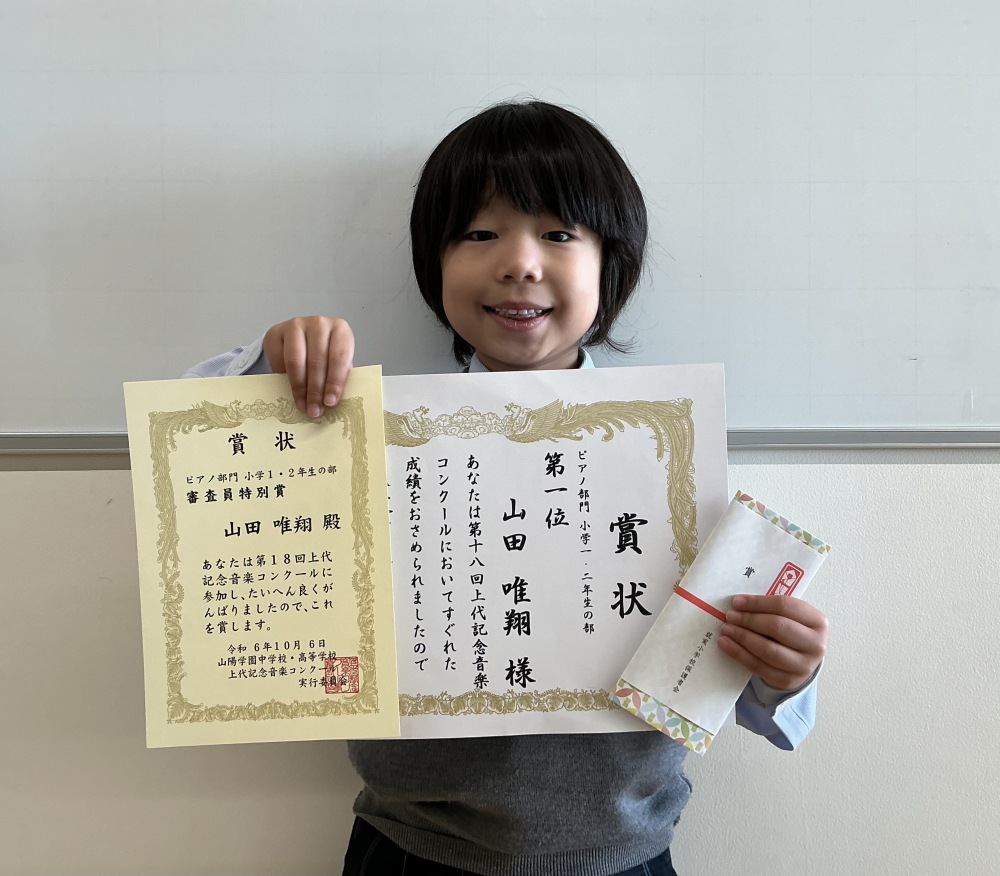 賞 状
ピアノ部門 小学1・2年生の部
審査員特別賞
山田 唯翔 殿
あなたは第18回上代
記念音楽コンクールに
参加し、たいへん良くが
んばりましたので、これ
を賞します。
令和 6年10月 6日
山陽学園中学校・高等学校
上代記念音楽コンクール
実行委員会
賞 状
ピアノ部門 小学一・二年生の部
第一位
山田 唯翔 様
あなたは第十八回上代記念音楽
コンクールにおいてすぐれた
成績をおさめられましたので
賞
就実小学校保護者会